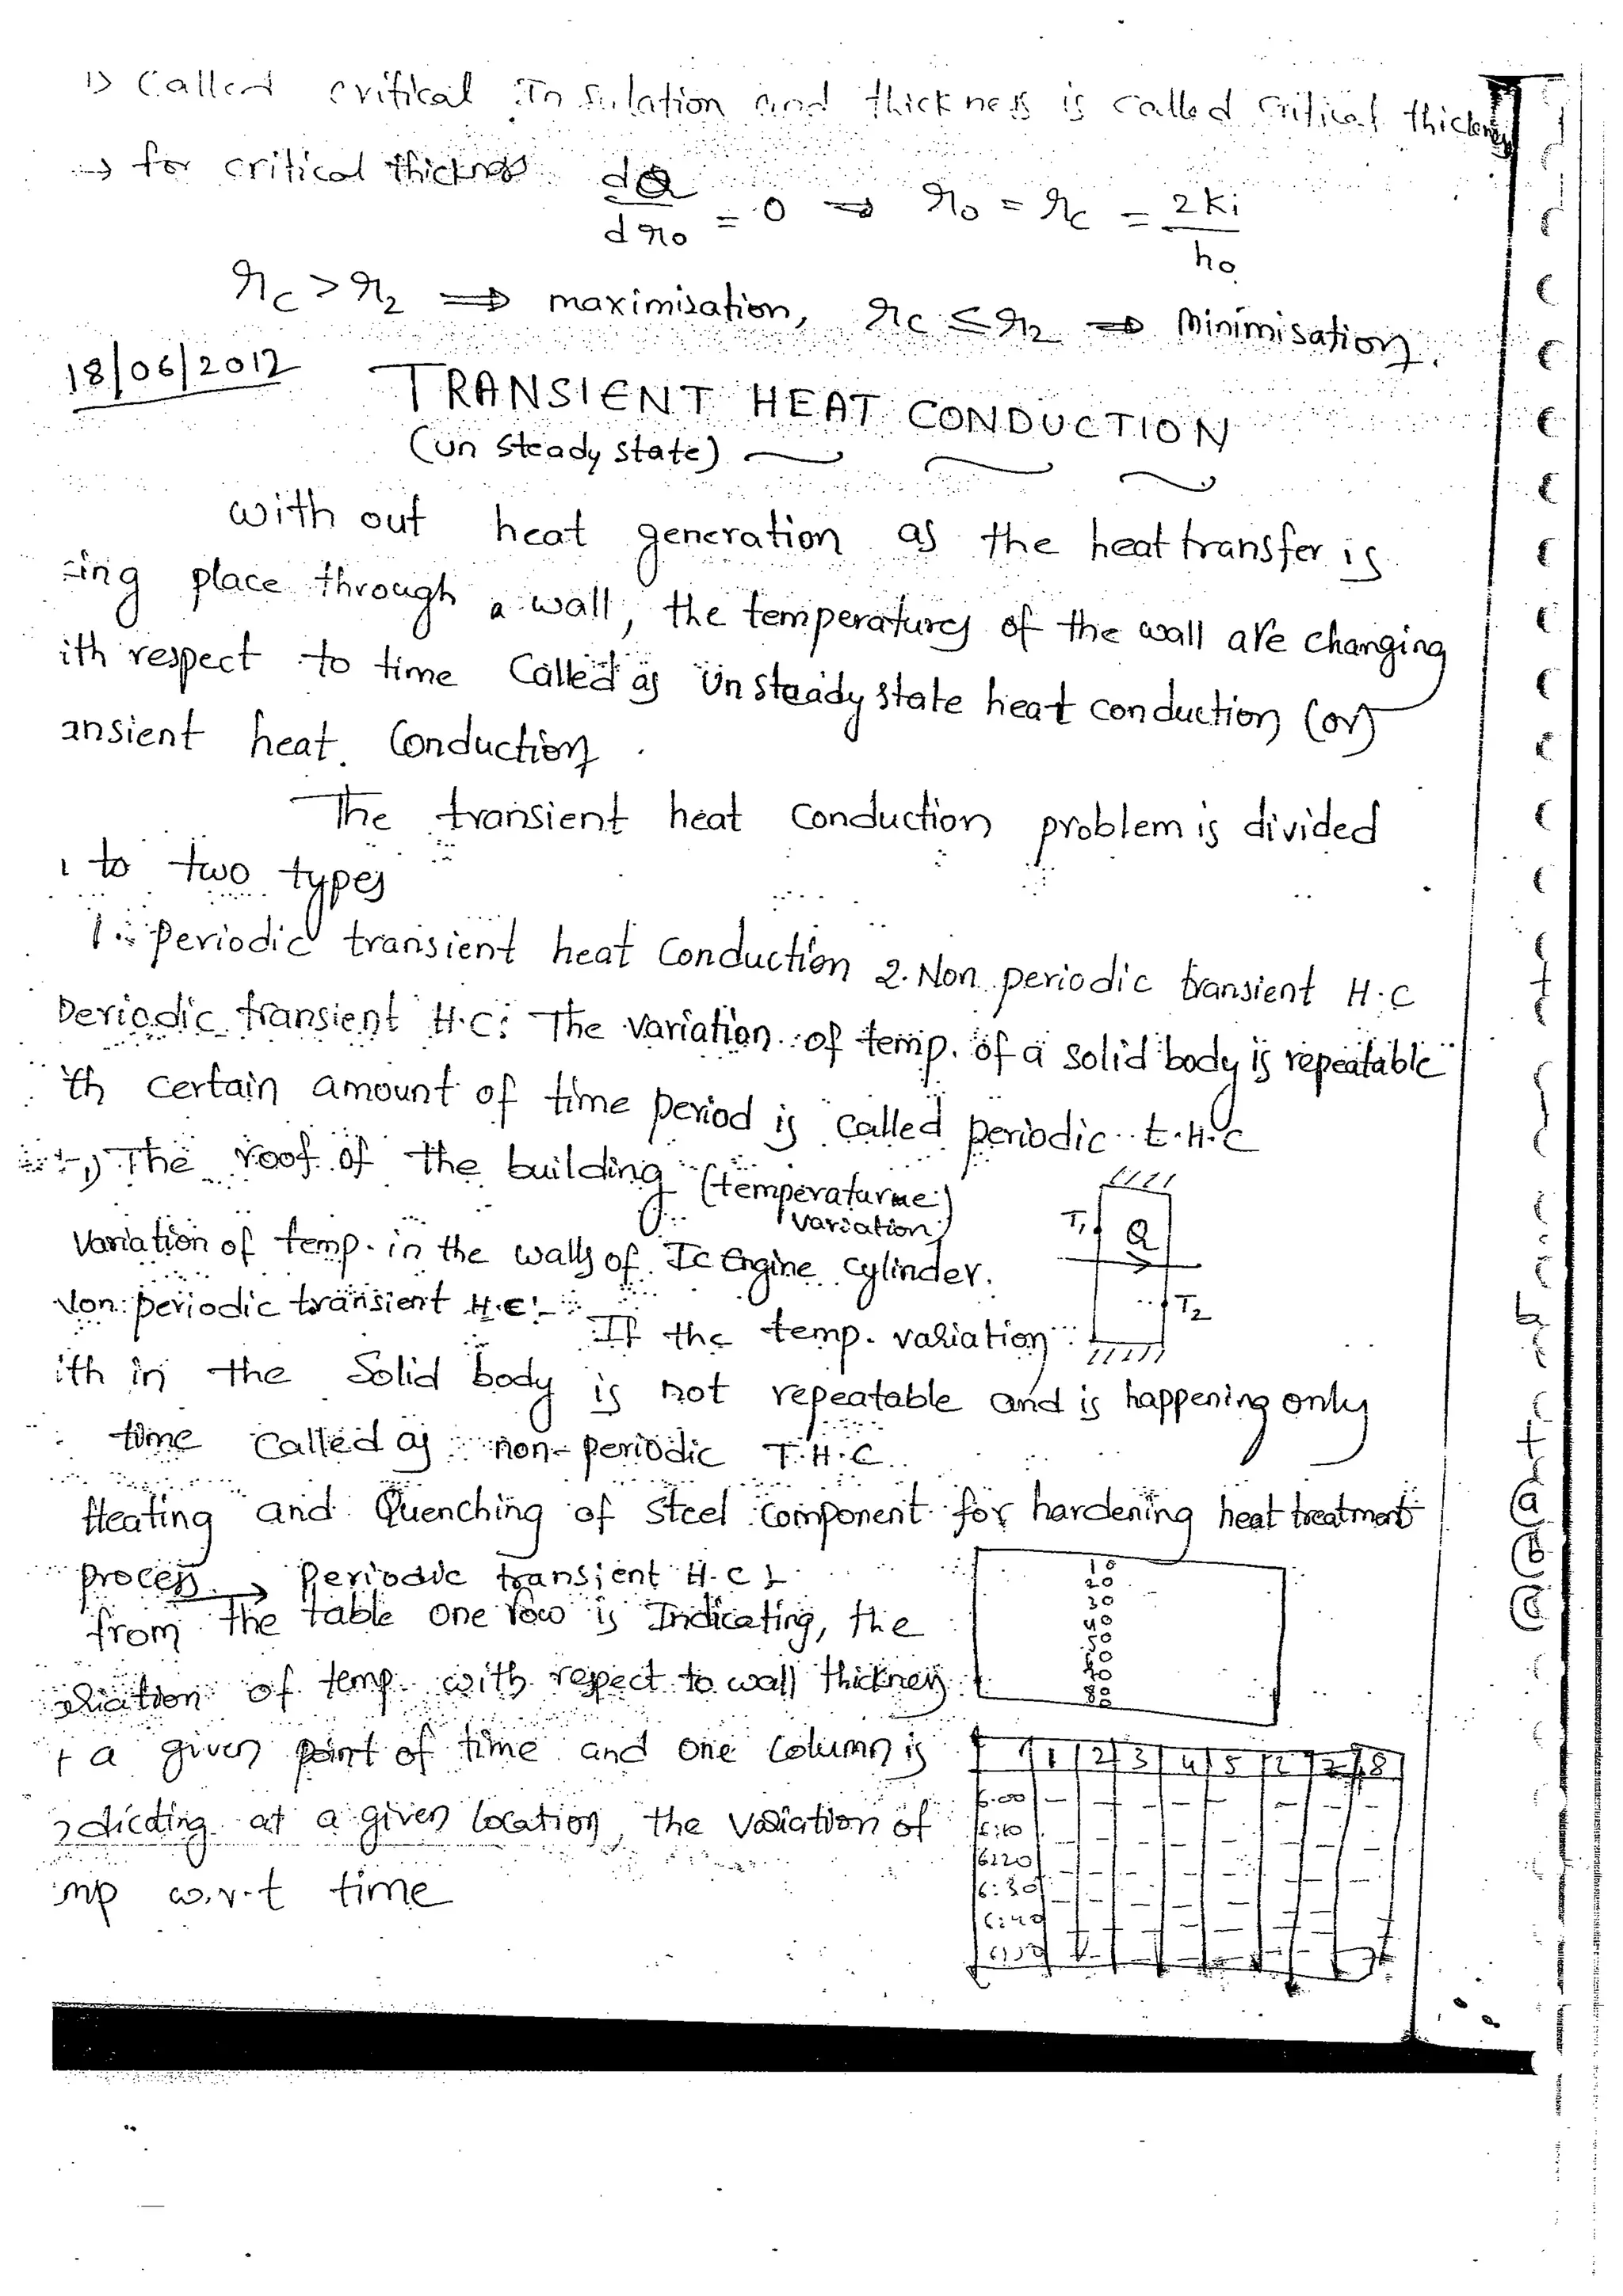 is called critical insulation and thickness is called critical thickness
→ for critical thickness dQ/dr₀ = 0 ⇒ r₀ = r_c = 2Ki/h₀
r_c > r₂ ⇒ maximisation, r_c ≤ r₂ ⇒ Minimisation.
18/06/2012
TRANSIENT HEAT CONDUCTION
(un steady state)
with out heat generation as the heat transfer is
ing place through a wall, the temperatures of the wall are changing
ith respect to time Called as Un steady state heat conduction (or)
ansient heat. Conduction.
The transient heat Conduction problem is divided
to two types
1. periodic transient heat Conduction 2. Non periodic transient H.C
Periodic transient H.C: The variation of temp. of a solid body is repeatable
th certain amount of time period is called periodic t.H.C
1) The roof of the building (temperature
variation)
Variation of temp. in the walls of Ic Engine cylinder.
T₁ Q
T₂
Non periodic transient H.C:- If the temp. variation
ith in the Solid body is not repeatable and is happening only
time called as non-periodic T.H.C.
Heating and Quenching of Steel Component for hardening heat treatment
process. → Periodic transient H.C
from the table one row is Indicating, the
ariation of temp. with respect to wall thickness
t a given point of time and one column is
ndicating at a given location, the variation of
mp w.r.t time
1 2 3 4 5 7 8
6.00
6:10
6:20
6:30
6:40
6:50